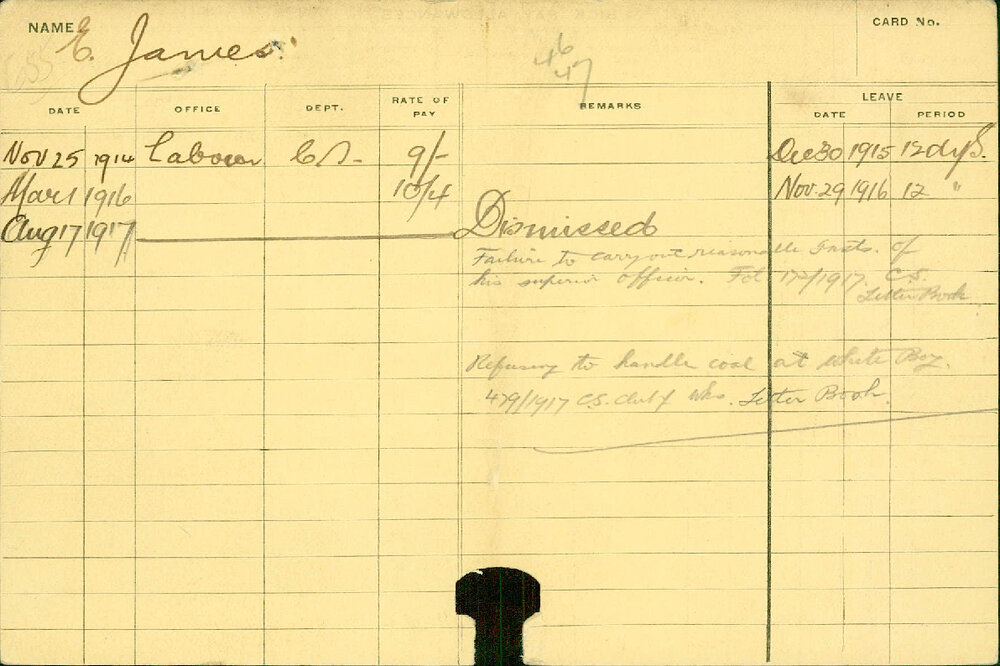 NAME E. James. CARD No.
46
47
DATE OFFICE DEPT. RATE OF PAY REMARKS LEAVE
DATE PERIOD
Nov 25 1914 Labourer 9/- Dec 30 1915 12 dys.
Mar 1 1916 10/4 Nov. 29 1916 12 "
Aug 17 1917 Dismissed
Failure to carry out reasonable Insts. of
his superior officer. 172/1917. C.S.
Letter Book
Refusing to handle coal at White Bay.
479/1917 C.S. Letter Book.